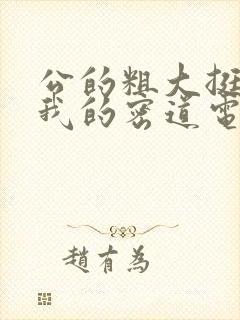 公的粗大挺
我的密道電
趙有為